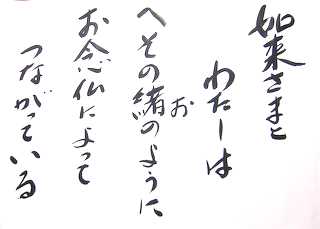 如来さまと
わたしは
へその緒のように
お
お念仏によって
つながっている